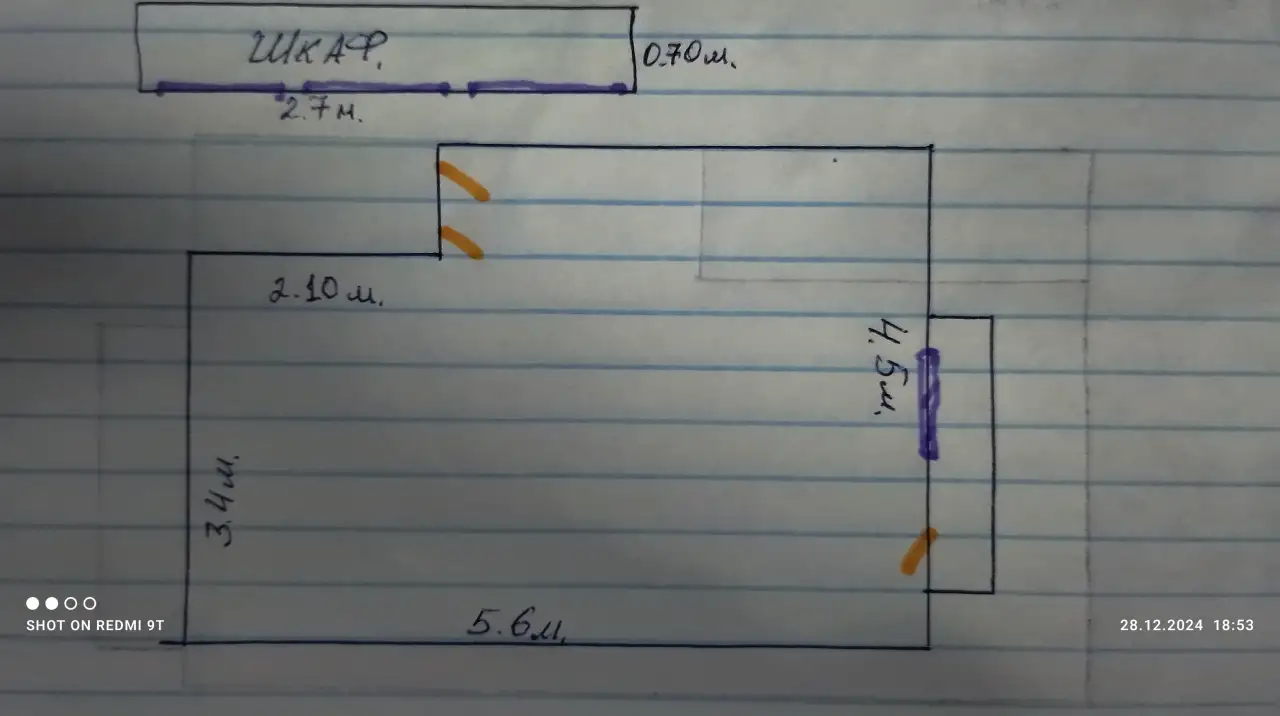 ШКАФ.
0.70м.
2.7м.
2.10м.
4.5м.
3.4м.
5.6м.
SHOT ON REDMI 9T
28.12.2024 18:53